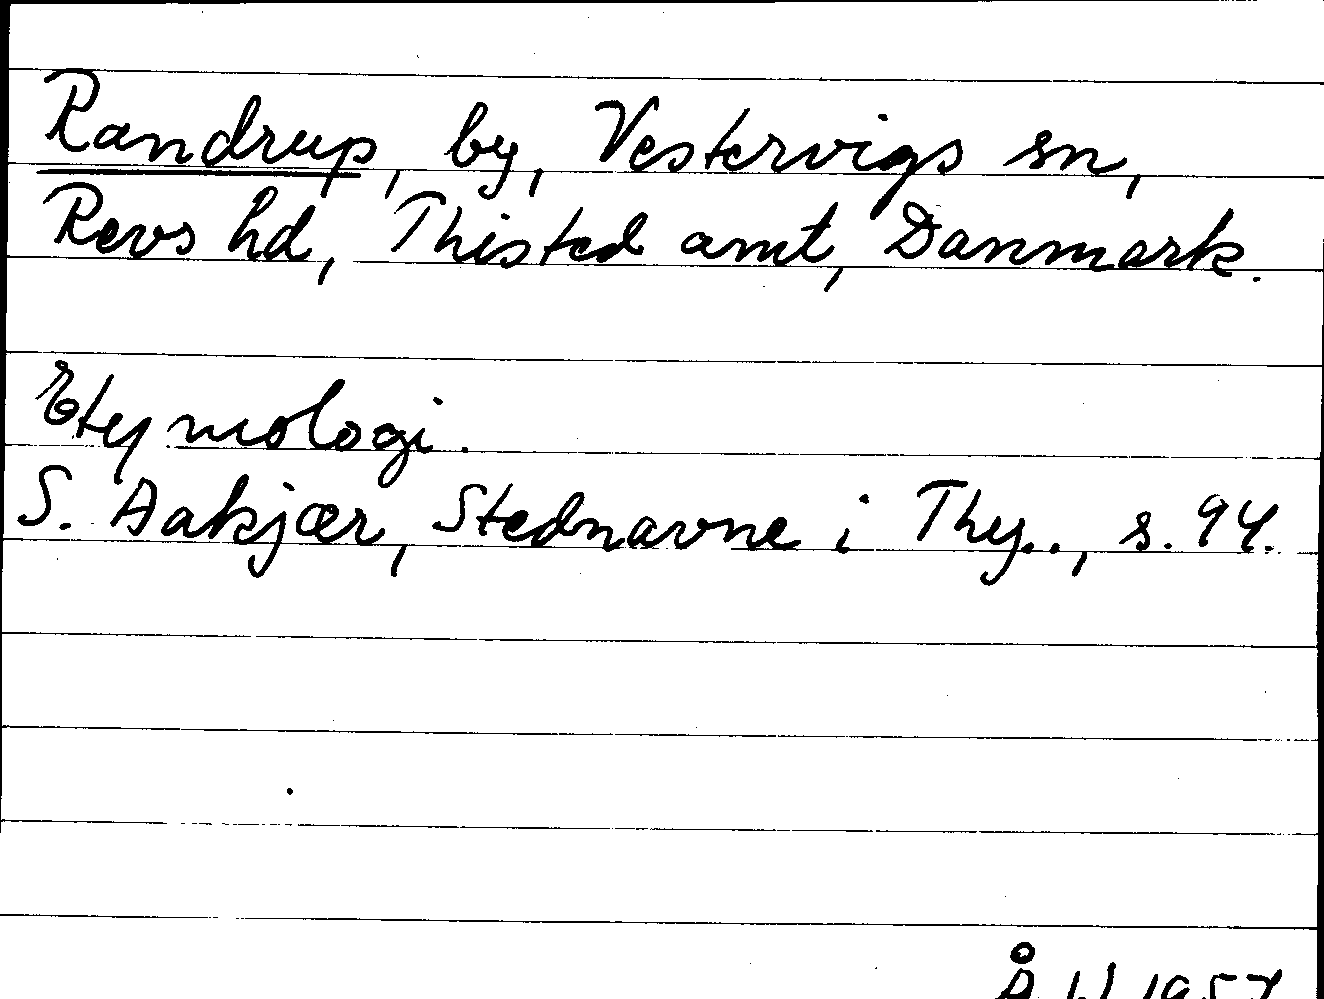 Randrup, by, Vestervigs sn,
Revs hd, Thisted amt, Danmark.
Etymologi.
S. Aakjær, Stednavne i Thy.., s. 94.
Å W 1957